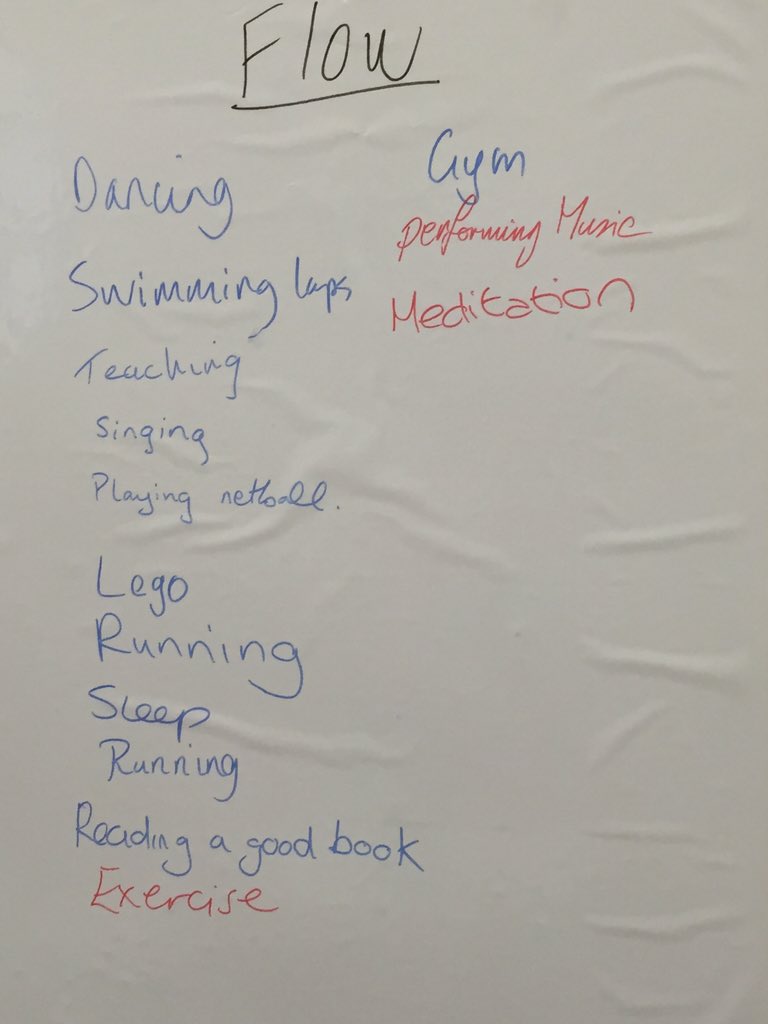 Flow
Dancing
Swimming laps
Teaching
Singing
Playing netball.
Lego
Running
Sleep
Running
Reading a good book
Exercise
Gym
performing Music
Meditation